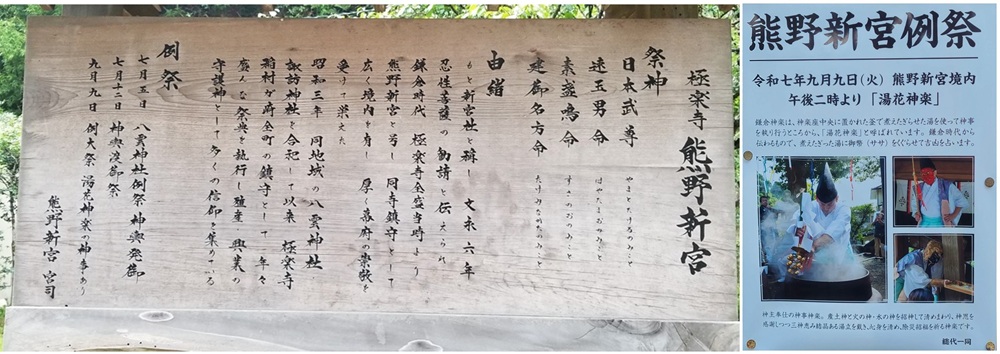 極楽寺 熊野新宮
祭神
日本武尊 やまとたけるのみこと
速玉男命 はやたまおのみこと
素盞鳴命 すさのおのみこと
建御名方命 たけみなかたのみこと
由緒
もと新宮社と称し 文永六年
忍性菩薩の勧請と伝えられ
鎌倉時代 極楽寺全盛時より
熊野新宮と号し 同寺鎮守として
広く境内を有し 厚く幕府の崇敬を
受けて栄えた
昭和三年 同地域の八雲神社
諏訪神社を合祀して以来 極楽寺
稲村ヶ崎全町の鎮守として 年々
盛んな祭典を執行し殖産 興業の
守護神として多くの信仰を集めている
例祭
七月五日 八雲神社例祭 神輿発御
七月十二日 神輿渡御祭
九月九日 例大祭 湯花神楽の神事あり
熊野新宮 宮司
熊野新宮例祭
令和七年九月九日(火) 熊野新宮境内
午後二時より「湯花神楽」
鎌倉神楽は、神楽座中央に置かれた釜で煮えたぎらせた湯を使って神事
を執り行うところから、「湯花神楽」と呼ばれています。鎌倉時代から
伝わるもので、煮えたぎった湯に御幣(ササ)をくぐらせて吉凶を占います。
神主奉仕の神事神楽。産土神と火の神・水の神を招神して清めまわり、神恩を
感謝しつつ三神恵み結晶ある湯立を戴き、心身を清め、除災招福を祈る神楽です。
総代一同